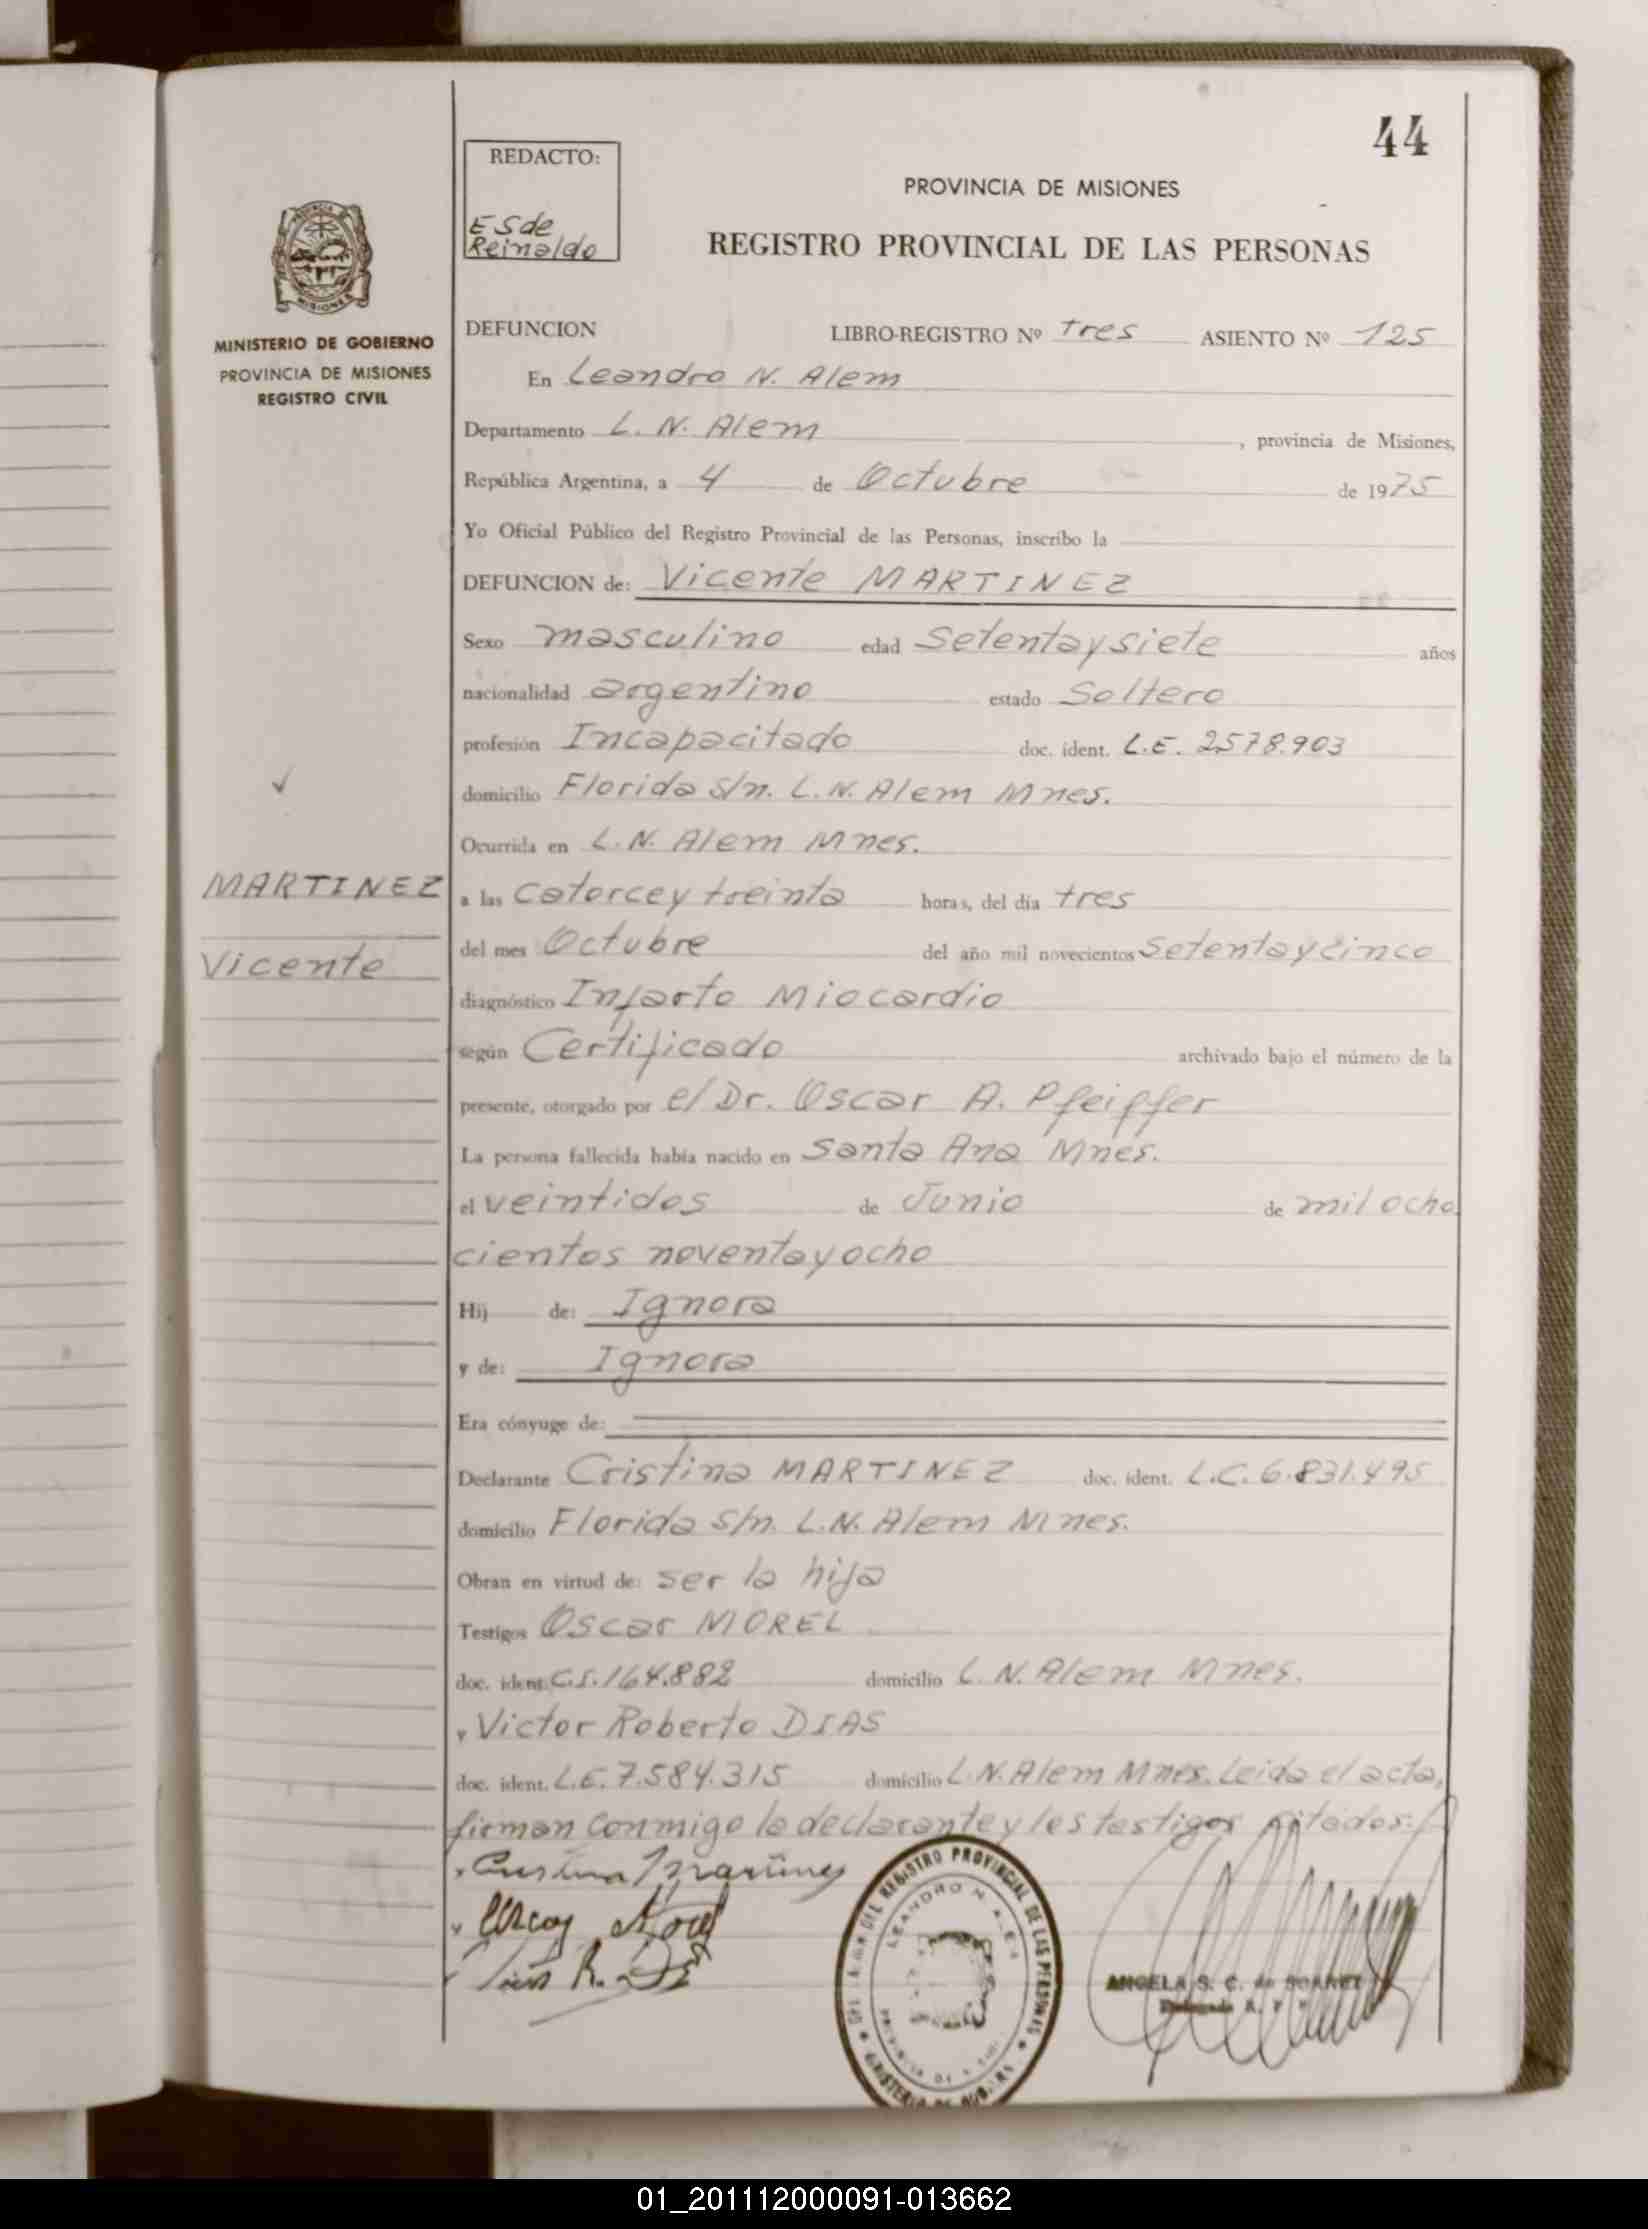 44
REDACTO:
ESde
Reinaldo
PROVINCIA DE MISIONES
REGISTRO PROVINCIAL DE LAS PERSONAS
MINISTERIO DE GOBIERNO
PROVINCIA DE MISIONES
REGISTRO CIVIL
DEFUNCION LIBRO-REGISTRO Nº tres ASIENTO Nº 125
En Leandro N. Alem
Departamento L. N. Alem, provincia de Misiones,
República Argentina, a 4 de Octubre de 1975
Yo Oficial Público del Registro Provincial de las Personas, inscribo la
DEFUNCION de: Vicente MARTINEZ
Sexo masculino edad Setentaysiete años
nacionalidad argentino estado Soltero
profesión Incapacitado doc. ident. L.E. 2578.903
domicilio Florida s/n. L.N. Alem Mnes.
Ocurrida en L.N. Alem Mnes.
MARTINEZ
Vicente
a las Catorcey treinta horas, del día tres
del mes Octubre del año mil novecientos Setentaycinco
diagnóstico Infarto Miocardio
según Certificado archivado bajo el número de la
presente, otorgado por el Dr. Oscar A. Pfeiffer
La persona fallecida había nacido en Santa Ana Mnes.
el veintidos de Junio de mil ocho
cientos noventayocho
Hij de: Ignora
y de: Ignora
Era cónyuge de:
Declarante Cristina MARTINEZ doc. ident. L.C. 6.831.495
domicilio Florida s/n. L.N. Alem Mnes.
Obran en virtud de: ser la hija
Testigos Oscar MOREL
doc. ident. C.I. 164.882 domicilio L. N. Alem Mnes.
y Victor Roberto DIAS
doc. ident. L.E. 7.584.315 domicilio L.N. Alem Mnes. Leida el acta,
firman conmigo la declarante y los testigos citados:
Cristina Martinez
Oscar Morel
ANGELA S. C. de
REGISTRO PROVINCIAL DE LAS PERSONAS
LEANDRO N. ALEM
01_201112000091-013662